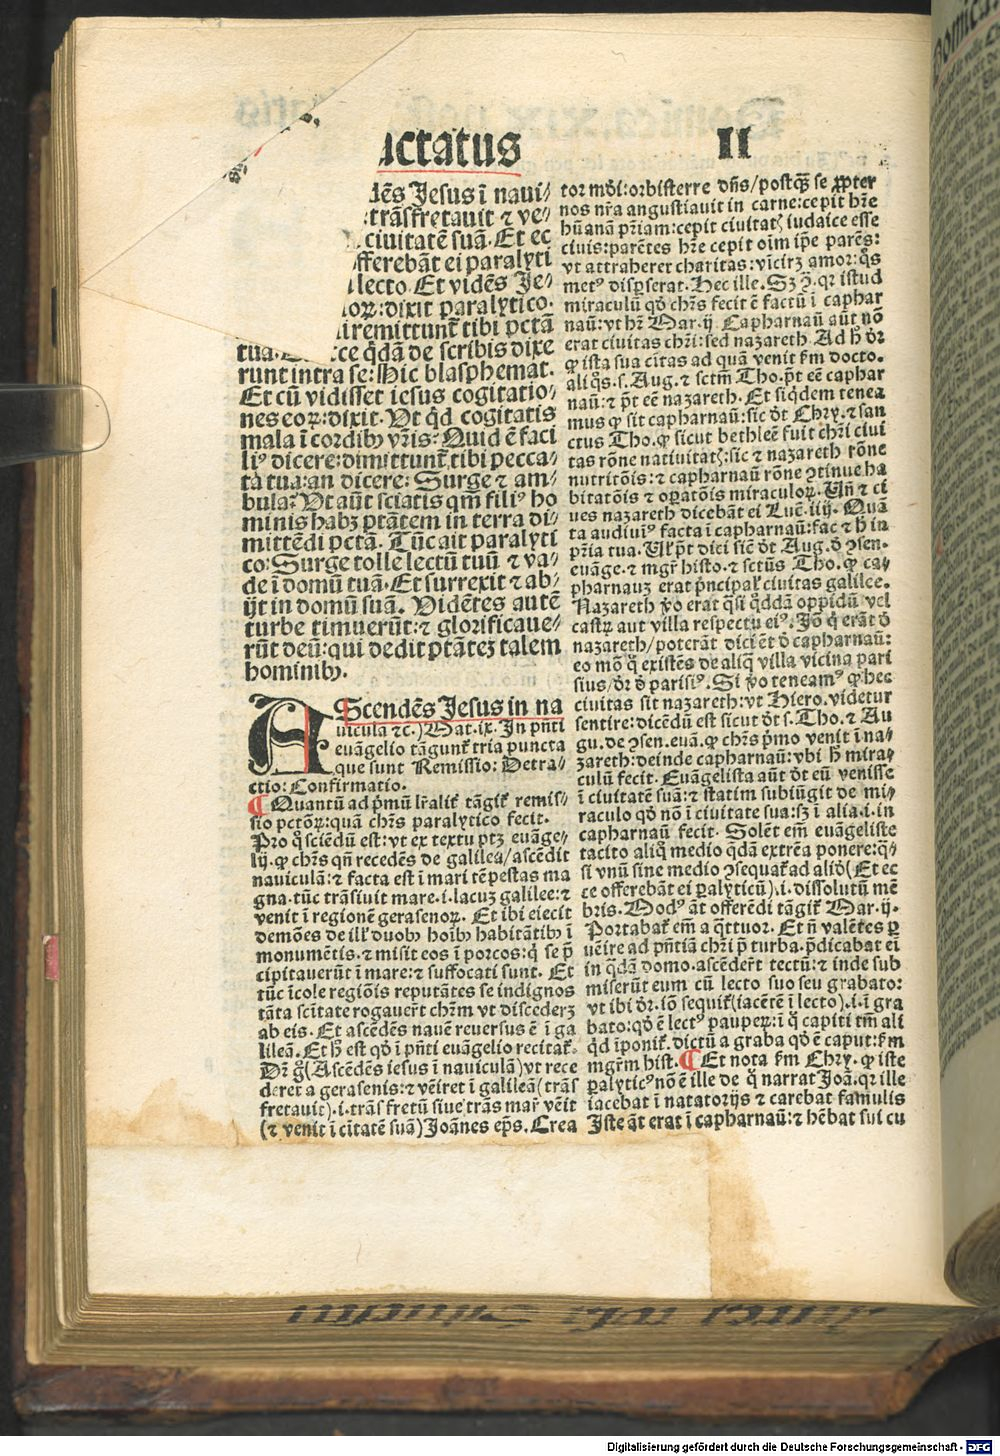 actatus II
dēs Jesus ī naui⸗
trāsfretauit ⁊ ve⸗
ciuitatē suā. Et ec
fferebāt ei paralyti
lecto. Et vidēs Je⸗
loꝝ: dixit paralytico.
remittunt̄ tibi pctā
tua. ce q̄dā de scribis dixe
runt intra se: Hic blasphemat.
Et cū vidisset iesus cogitatio⸗
nes eoꝝ: dixit. Vt qd cogitatis
mala ī cordibꝰ vr̄is. Quid ē faci
liꝰ dicere: dimittunt̄ tibi pecca⸗
ta tua: an dicere: Surge ⁊ am⸗
bula? Vt aūt sciatis qm̄ filiꝰ ho
minis habꝫ ptātem in terra di⸗
mittēdi pctā. Tūc ait paralyti
co: Surge tolle lectū tuū ⁊ va⸗
de ī domū tuā. Et surrexit ⁊ ab⸗
ijt in domū suā. Vidētes autē
turbe timuerūt: ⁊ glorificaue⸗
rūt deū: qui dedit ptātez talem
hominibꝰ.
AScendēs Jesus in na
uicula ⁊c.) Mat. ix. In pn̄ti
euāgelio tāgunt̄ tria puncta
que sunt Remissio: Detra⸗
ctio: Confirmatio.
¶ Quantū ad pͥmū lr̄alit̄ tāgit̄ remis⸗
sio pctōꝝ: quā chr̄s paralytico fecit.
Pro qͦ sciēdū est: vt ex textu ptꝫ euāge⸗
lij. ꝙ chr̄s qn̄ recedēs de galilea/ ascēdit
nauiculā: ⁊ facta est ī mari tēpestas ma
gna. tūc trāsiuit mare. i. lacuꝫ galilee: ⁊
venit ī regionē gerasenoꝝ. Et ibi eiecit
demōes de ill' duobꝰ hoībꝰ habitātibꝰ ī
monumētis. ⁊ misit eos ī porcos: q̄ se p̄
cipitauerūt ī mare: ⁊ suffocati sunt. Et
tūc īcole regiōis reputātes se indignos
tāta scītate rogauer̄t chr̄m vt discederꝫ
ab eis. Et ascēdēs nauē reuersus ē ī ga
lileā. Et h̄ est qd̄ ī pn̄ti euāgelio recitat̄.
Dr̄ g̊ (Ascēdēs iesus ī nauiculā) vt rece
deret a gerasenis: ⁊ vēiret ī galileā (trās
fretauit). i. trās fretū siue trās mar̄ vēit
(⁊ venit ī citatē suā) Joānes ep̄s. Crea
tor mōi: orbisterre dn̄s/ postqꝫ se ꝓpter
nos nr̄a angustiauit in carne: cepit hr̄e
hūanā pr̄iam: cepit ciuitatꝭ iudaice esse
ciuis: parētes hr̄e cepit oīm ip̄e parēs:
vt attraheret charitas: vicirꝫ amor: qͦs
metꝰ disꝑserat. Hec ille. Sꝫ ꝗ̄. qr istud
miraculū qd̄ chr̄s fecit ē factū ī caphar
naū: vt hꝫ Mar. ij. Capharnaū aūt nō
erat ciuitas chr̄i: sed nazareth. Ad h̄ dr̄
ꝙ ista sua cītas ad quā venit fm docto.
aliqͦs. s. Aug. ⁊ sctm̄ Tho. pt̄ eē caphar
naū: ⁊ pt̄ eē nazareth. Et siqͥdem tenea
mus ꝙ sit capharnaū: sic dt̄ Chry. ⁊ san
ctus Tho. ꝙ sicut bethleē fuit chr̄i ciui
tas rōne natiuitatꝭ: sic ⁊ nazareth rōne
nutritōis: ⁊ capharnaū rōne ꝯtinue ha
bitatōis ⁊ oꝑatōis miraculoꝝ. Vn̄ ⁊ ci
ues nazareth dicebāt ei Luē. iiij. Quā
ta audiuimꝰ facta ī capharnaū: fac ⁊ h̄ in
pr̄ia tua. Ul' pt̄ dici sic dt̄ Aug. ō ꝯsen.
euāge. ⁊ mgr̄ histo. ⁊ sctūs Tho. ꝙ ca⸗
pharnauꝫ erat pͥncipal' ciuitas galilee.
Nazareth ꝟo erat qͣsi qͦddā oppidū vel
castrꝫ aut villa respectu eiꝰ. Jō qͥ erāt ō
nazareth/ poterāt dici ēt ō capharnaū:
eo mō qͦ existēs de aliqͣ villa vicina pari
sius/ dr̄ ō parisiꝰ. Si ꝟo teneamꝰ ꝙ hec
ciuitas sit nazareth: vt Hiero. videtur
sentire: dicēdū est sicut dt̄ s. Tho. ⁊ Au
gu. de ꝯsen. euā. ꝙ chr̄s pͥmo venit ī na⸗
zareth: deinde capharnaū: vbi h̄ mira⸗
culū fecit. Euāgelista aūt dt̄ eū venisse
ī ciuitatē suā: ⁊ statim subiūgit de mi⸗
raculo qd̄ nō ī ciuitate sua: sꝫ ī alia. i. in
capharnaū fecit. Solēt em̄ euāgeliste
tacito aliqͦ medio qͣdā extrēa ponere: qͣ⸗
si vnū sine medio ꝯsequat̄ ad aliō (Et ec
ce offerebāt ei ꝑalyticū). i. dissolutū mē
bris. Modꝰ āt offerēdi tāgit̄ Mar. ij.
Portabat̄ em̄ a qͣttuor. Et n̄ valētes ꝑ
uēire ad pn̄tiā chr̄i p̄ turba. p̄dicabat ei
in qͣdā domo. ascēder̄t tectū: ⁊ inde sub
miserūt eum cū lecto suo seu grabato:
vt ibi dr̄. iō sequit̄ (iacētē ī lecto). i. ī gra
bato: qd̄ ē lectꝰ pauperꝝ: ī qͦ capiti tm̄ ali
qͥd īponit̄. dictū a graba qd̄ ē caput: fm
mgr̄m hist. ¶ Et nota fm Chry. ꝙ iste
ꝑalyticꝰ nō ē ille de qͦ narrat Joā. qr ille
iacebat ī natatorijs ⁊ carebat famulis
Jste āt erat ī capharnaū: ⁊ hēbat sui cu
Digitalisierung gefördert durch die Deutsche Forschungsgemeinschaft - DFG